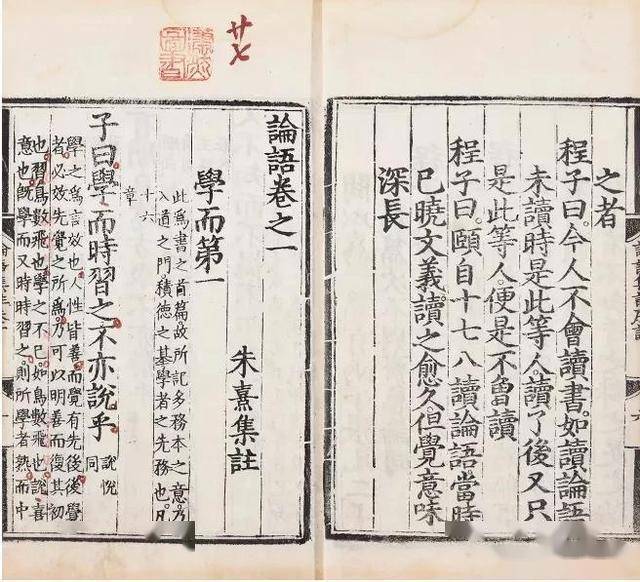 廿七
之者
程子曰。今人不會讀書。如讀論語
未讀時是此等人。讀了後又只
是此等人。便是不曾讀
程子曰。頤自十七八讀論語。當時
已曉文義。讀之愈久。但覺意味
深長
論語卷之一
朱熹集註
學而第一
此爲書之首篇。故所記多務本之意。乃
入道之門。積德之基。學者之先務也。凡
十六
章
子曰。學而時習之。不亦說乎
說悅
同
學之爲言效也。人性皆善。而覺有先後。後覺
者。必效先覺之所爲。乃可以明善而復其初
也。習。鳥數飛也。學之不已。如鳥數飛也。說。喜
意也。旣學而又時時習之。則所學者熟。而中